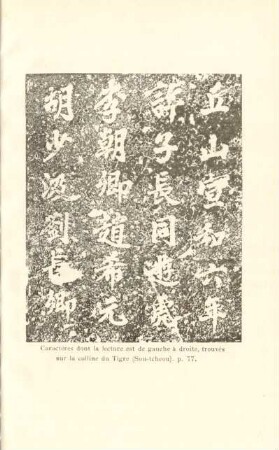 胡少汲劉卿
李朝卿趙希元
許子長同遊
丘山宣和六年
Caractères dont la lecture est de gauche à droite, trouvés
sur la colline du Tigre (Sou-tcheou). p. 77.